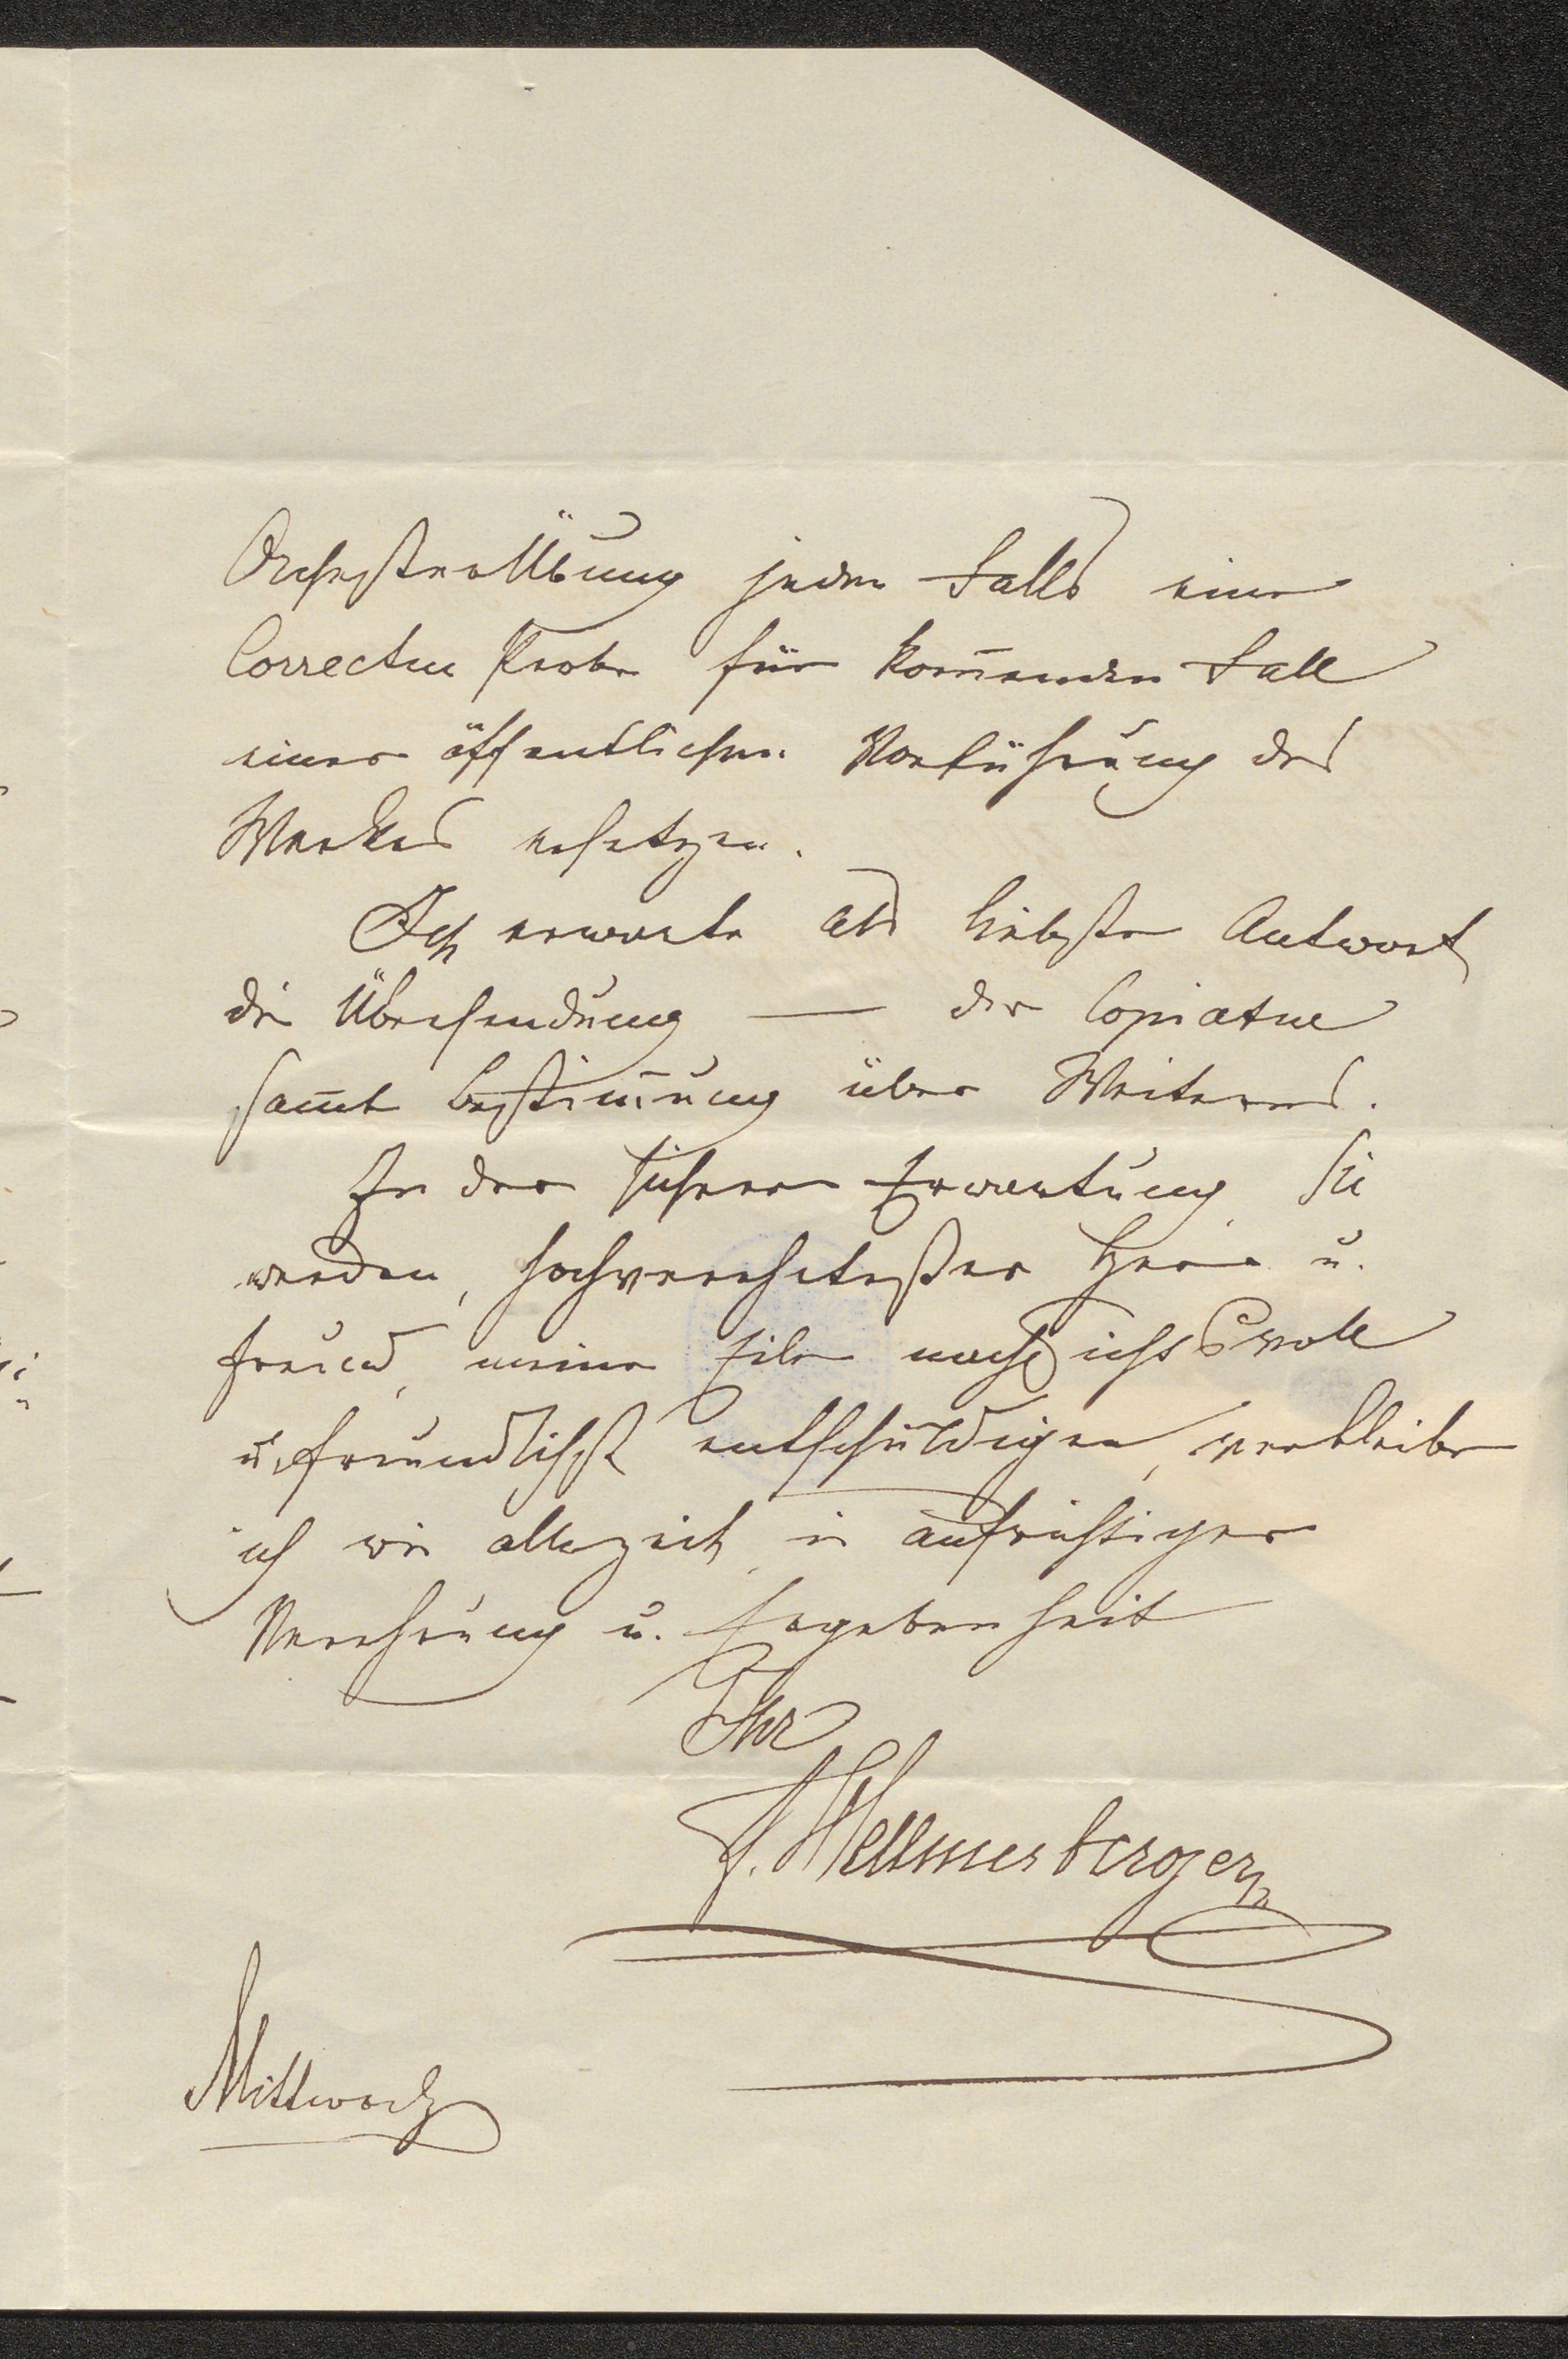 OrchesterÜbung jeden Falls eine
Correctur Probe für kom̄enden Fall
einer öffentlichen Vorführung des
Werkes ersetzen.
Ich erwarte als liebste Antwort
die Übersendung — der Copiatur
sam̄t Bestim̄ung über Weiteres.
In der sichern Erwartung, Sie
werden, hochverehrtester Herr u.
Freund, meine Eile nachsichtsvoll
u. freundlichst entschuldigen, verbleibe
ich wie allezeit, in aufrichtiger
Verehrung u. Ergebenheit
Ihr
J. Hellmesberger
Mittwoch